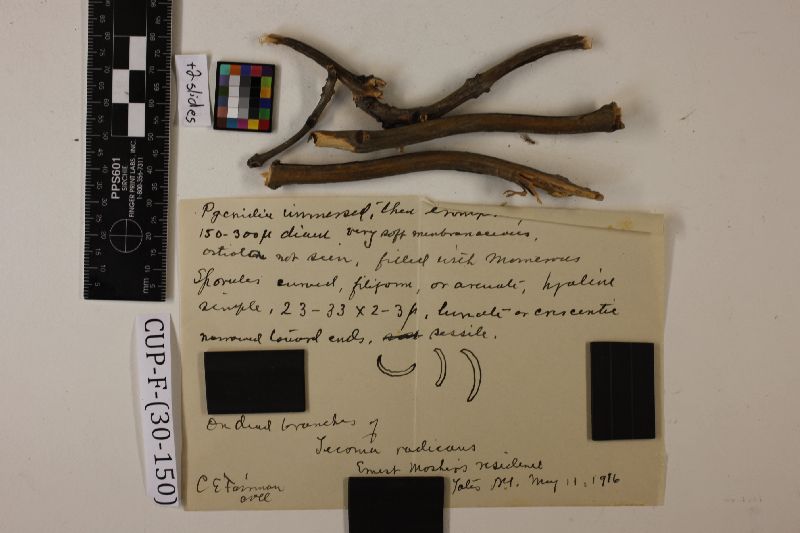 +2 slides
PPS601
SIRCHIE
FINGER PRINT LABS, INC.
800-356-7311
mm
CUP-F-(30-150)
Pycnidia immersed, then erump.
150-300µ diam very soft membranaceous,
not seen, filled with numerous
Sporules curved, filiform, or arcuate, hyaline
simple, 23-33 x 2-3µ, lunate or crescentic
narrowed toward ends, sessile.
On dead branches of
Tecoma radicans
Ernest Moshier's residence
C E Fairman Yates N.Y. May 11, 1916